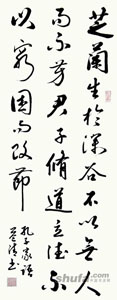 芝蘭生於深谷不以無人
而不芳君子脩道立德不
以窮困而改節
孔子家語
shufa.com